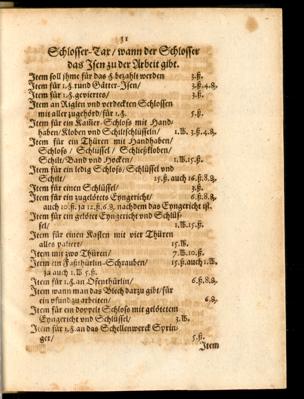 31
Schlosser-Tax/ wann der Schlosser
das Isen zu der Arbeit gibt.
Item soll ihme für das ℔ bezahlt werden 3.ß.
Item für 1.℔. rund Gätter-Isen/ 3.ß.4.₰.
Item für 1.℔. geviertes/ 3.ß.
Item an Riglen und verdeckten Schlossen
mit aller zugehörd/ für 1.℔. 5.ß.
Item für ein Kasten-Schloß mit Hand-
haben/ Kloben und Schiltschlüsseln/ 1.W. 3.ß.4.₰.
Item für ein Thüren mit Handhaben/
Schloß / Schlüssel / Schließkloben/
Schilt/ Band und Hocken/ 1.W.15.ß.
Item für ein ledig Schloß/ Schlüssel und
Schilt/ 15.ß. auch 16.ß.8.₰.
Item für einen Schlüssel/ 3.ß.
Item für ein zugelötets Eyngericht/ 6.ß.8.₰.
auch 10.ß. ja 12.ß.6.₰. nachdem das Eyngericht ist.
Item für ein gelötet Eyngericht und Schlüs-
sel/ 1.W.15.ß.
Item für einen Kasten mit vier Thüren
alles 15.W.
Item mit zwo Thüren/ 7.W.10.ß.
Item ein Schrauben/ 15.ß. auch 1.W.
ja auch 1.W. 5.ß.
Item für 1.℔. an Ofenthürlin/ 6.ß.8.₰.
Item wann man das Blech darzu gibt/ für
ein pfund zu arbeiten/ 6.₰.
Item für ein doppelt Schloß mit gelötetem
Eyngericht und Schlüssel/ 3.W.
Item für 1.℔. an das Schellenwerck Sprin-
ger/ 5.ß.
Item